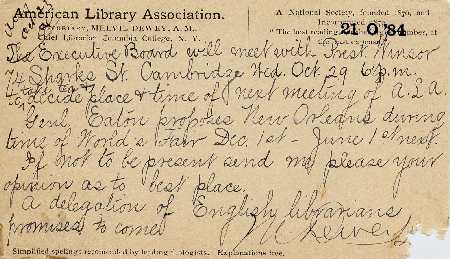 American Library Association.
Secretary, MELVIL DEWEY, A.M.
Chief Librarian Columbia College, N. Y.
A National Society, founded 1876, and
21 O 84
"The best reading for the largest number, at
The Executive Board will meet with Prest Winsor
74 Sparks St. Cambridge Wed. Oct 29 6 p.m.
to decide place & time of next meeting of A.L.A.
Genl. Eaton proposes New Orleans during
time of World's Fair Dec. 1st - June 1st next.
If not to be present send me please your
opinion as to best place.
A delegation of English librarians
promises to come
Dewey
Simplified spelings recomended by leading filologists. Explanations free.